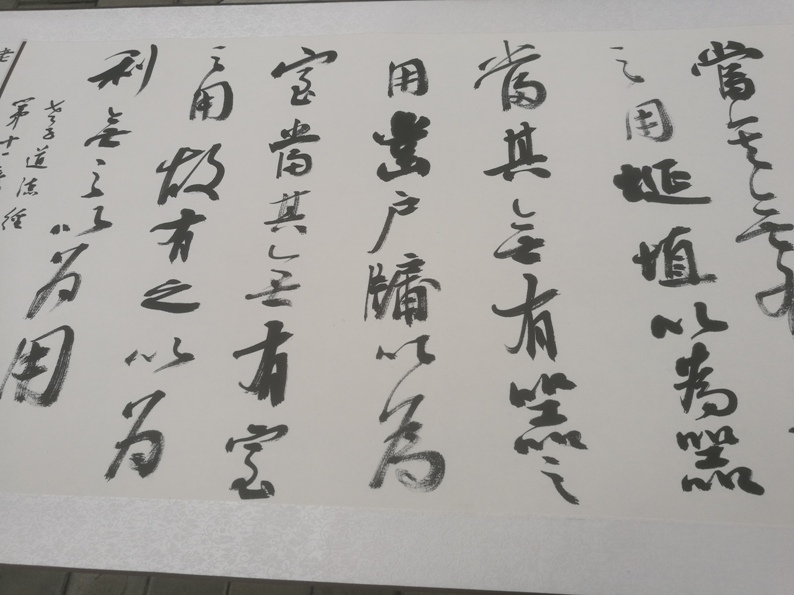 當其無有
之用埏埴以為器
當其無有器之
用鑿戶牖以為
室當其無有室
之用故有之以为
利無之以为用
老子道德經
第十一章